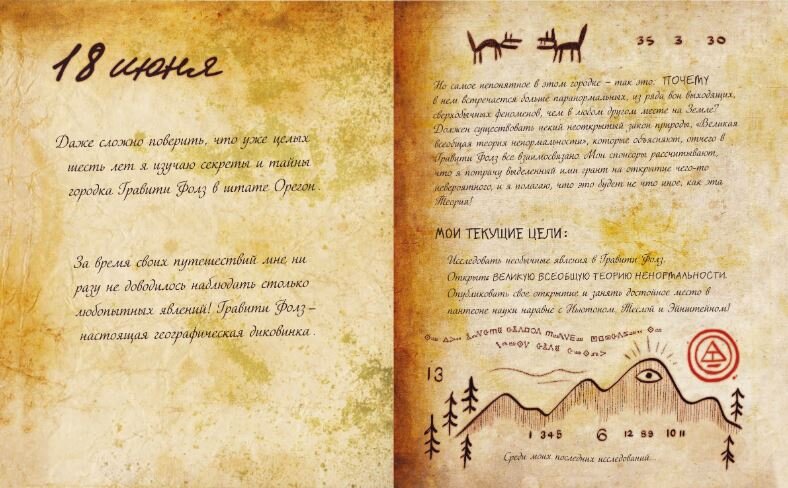 18 июня
Даже сложно поверить, что уже целых
шесть лет я изучаю секреты и тайны
городка Гравити Фолз в штате Орегон.
За время своих путешествий мне ни
разу не доводилось наблюдать столько
любопытных явлений! Гравити Фолз –
настоящая географическая диковинка.
35 3 30
Но самое непонятное в этом городке – так это: ПОЧЕМУ
в нем встречается больше паранормальных, из ряда вон выходящих,
сверхобычных феноменов, чем в любом другом месте на Земле?
Должен существовать некий неоткрытый закон природы, «Великая
всеобщая теория ненормальности», которые объясняют, отчего в
Гравити Фолз все взаимосвязано. Мои спонсоры рассчитывают,
что я потрачу выделенный ими грант на открытие чего-то
невероятного, и я полагаю, что это будет не что иное, как эта
Теория!
МОИ ТЕКУЩИЕ ЦЕЛИ:
Исследовать необычные явления в Гравити Фолз.
Открыть ВЕЛИКУЮ ВСЕОБЩУЮ ТЕОРИЮ НЕНОРМАЛЬНОСТИ.
Опубликовать свое открытие и занять достойное место в
пантеоне науки наравне с Ньютоном, Теслой и Эйнштейном!
13
1 345 6 12 89 10 11
Среди моих последних исследований...